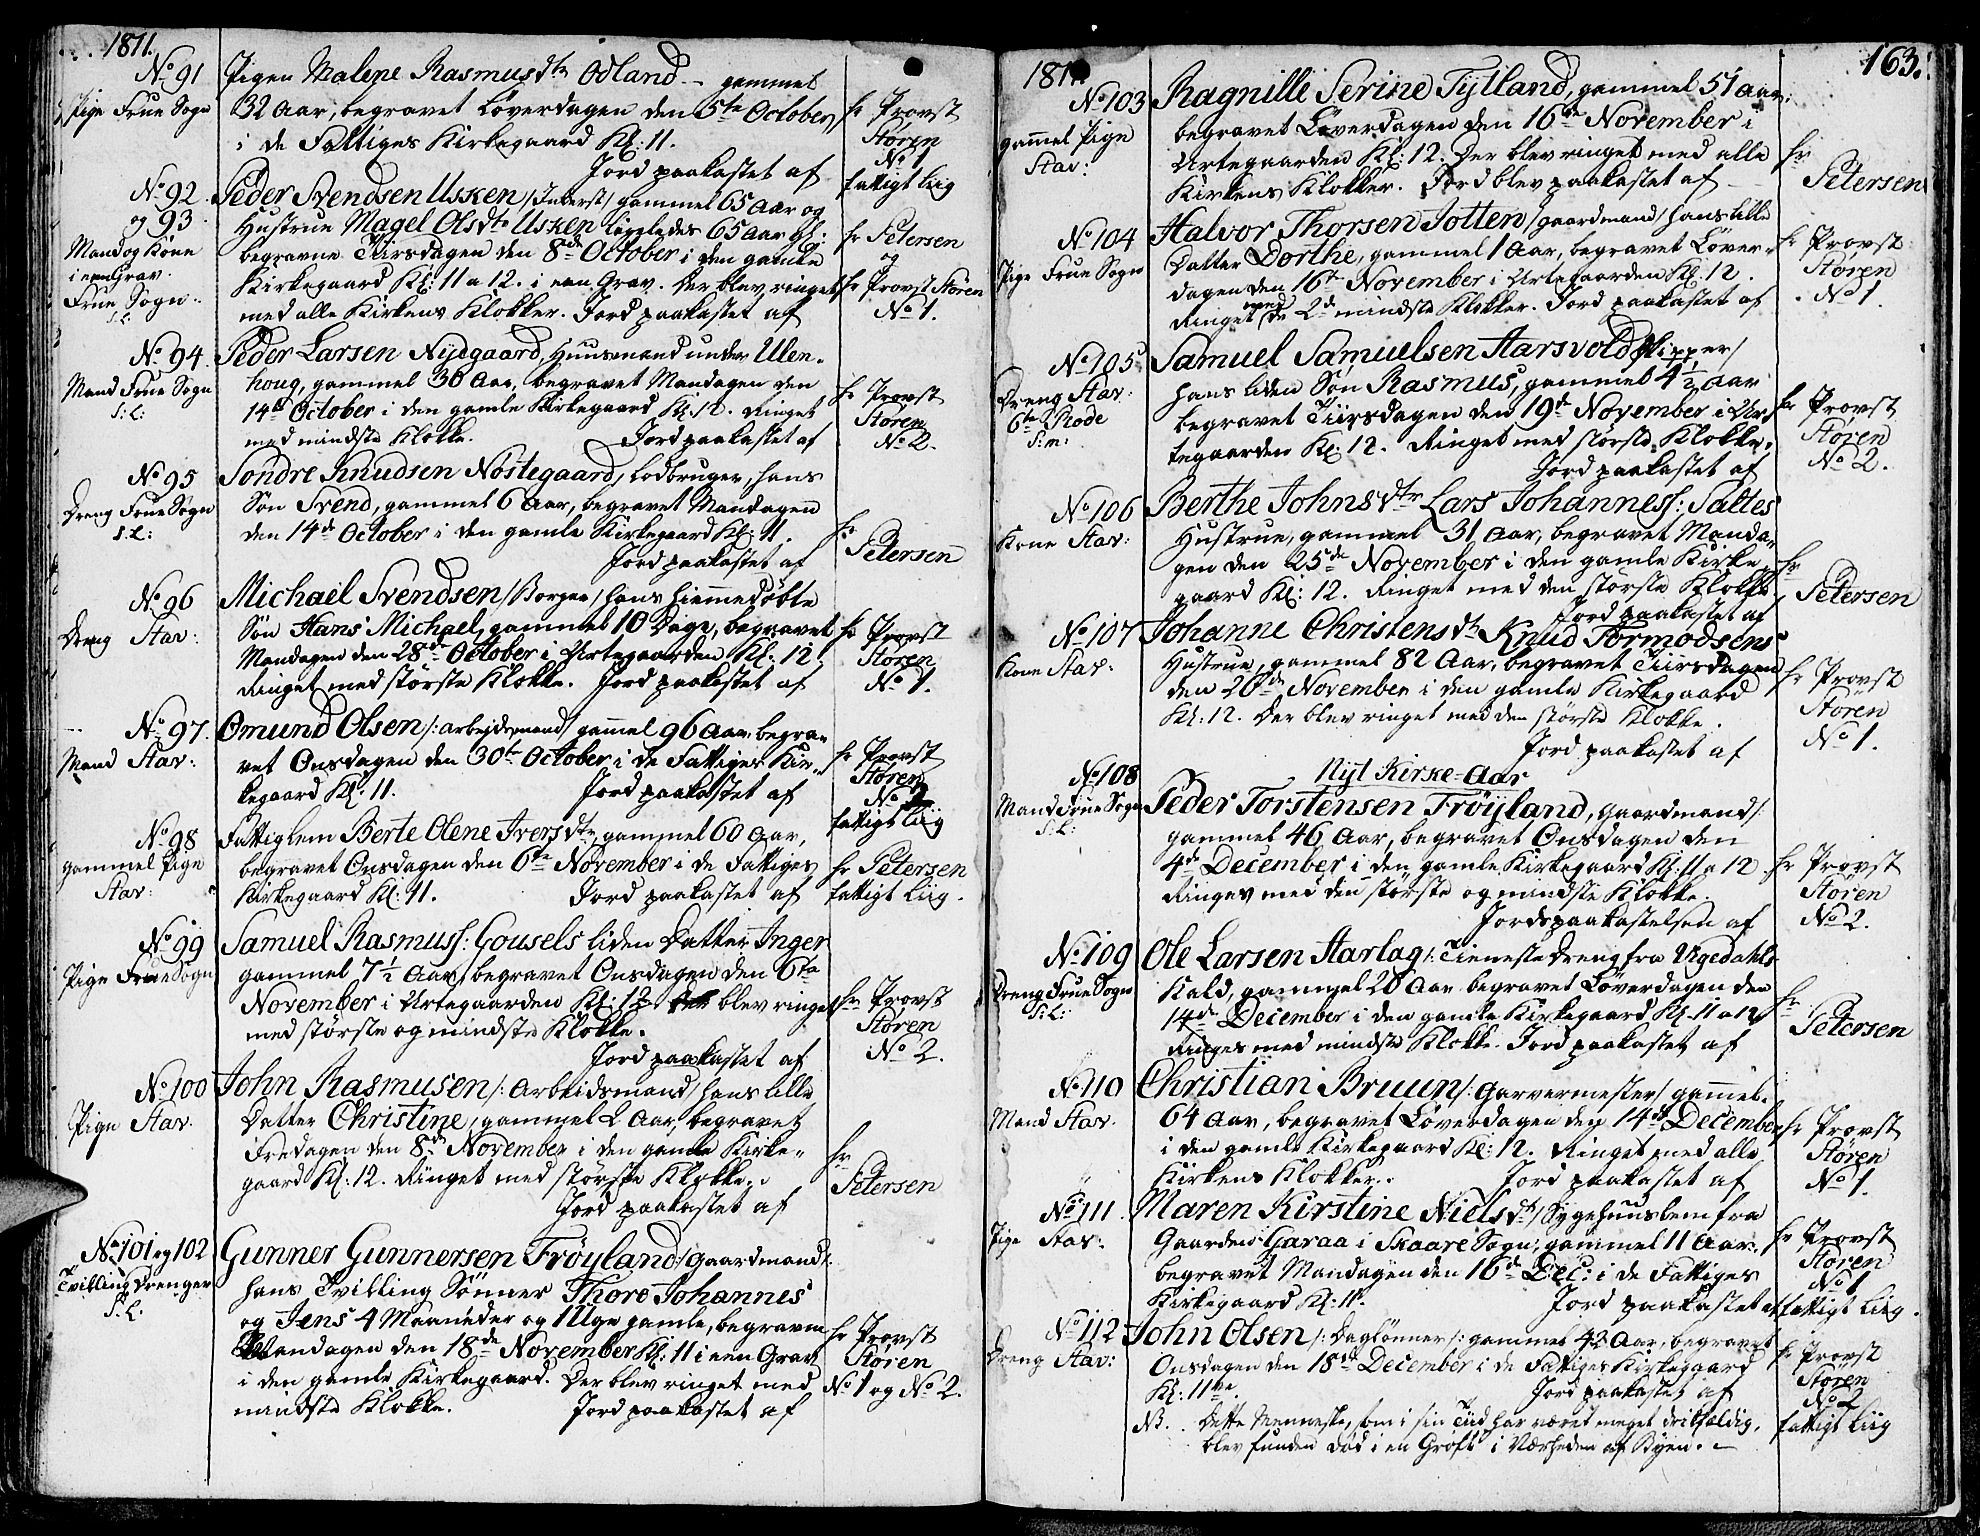 1811.
No 91
Pige Frue Sogn
Pigen Malene Rasmusdtr Odland - gammel
32 Aar, begravet Løverdagen den 5te October
i de Fattiges Kirkegaard Kl: 11.
Jord paakastet af
hr Provst
Støren
No 1
fattigt Liig
No 92
og 93
Mand og Kone
i een Grav.
Frue Sogn.
S.L.
Peder Svendsen Usken /Inderst/ gammel 65 Aar og
Hustrue Magel Olsdtr Usken ligeledes 65 Aar gl.
begravne Tiirsdagen den 8de October i den gamle
Kirkegaard Kl: 11 a 12. i een Grav. Der blev ringet
med alle Kirkens Klokker. Jord paakastet af
hr Petersen
og
hr Provst Støren
No 1.
No 94
Mand Frue Sogn
S:L:
Peder Larsen Nydgaard, Huusmand under Ulen-
houg, gammel 30 Aar, begravet Mandagen den
14de October i den gamle Kirkegaard Kl: 12. Ringet
med mindste Klokke. Jord paakastet af
hr Provst
Støren
No 2.
No 95
Dreng Frue Sogn
S.L:
Sondre Knudsen Nostegaard, Lodbruger, hans
Søn Svend, gammel 6 Aar, begravet Mandagen
den 14de October i den gamle Kirkegaard Kl: 11.
Jord paakastet af
hr
Petersen
No 96
Dreng Stav:
Michael Svendsen /Borger/ hans hiemmedøbte
Søn Hans Michael, gammel 10 Dage, begravet
Mandagen den 28de October i Urtegaarden Kl: 12.
Ringet med største Klokke. Jord paakastet af
hr Provst
Støren
No 1.
No 97.
Mand Stav:
Omund Olsen /: arbejdsmand/ gammel 96 Aar, begra-
vet Onsdagen den 30te October i de Fattiges Kir-
kegaard Kl: 11. Jord paakastet af
hr Provst
Støren
No 2
fattigt Liig
No 98
gammel Pige
Stav:
Fattiglem Berte Olene Iversdtr gammel 60 Aar,
begravet Onsdagen den 6te November i de Fattiges
Kirkegaard Kl: 11. Jord paakastet af
hr Petersen
fattigt Liig.
No 99
Pige Frue Sogn
Samuel Rasmuss: Gousels liden Datter Inger
gammel 7½ Aar, begravet Onsdagen den 6te
November i Urtegaarden Kl: 12 Der blev ringet
med største og mindste Klokke.
Jord paakastet af
hr Provst
Støren
No 2.
No 100
Pige Stav:
John Rasmusen /: Arbeidsmand/ hans lille
Datter Christine, gammel 2 Aar, begravet
Fredagen den 8de November i den gamle Kirke-
gaard Kl: 12. Ringet med største Klokke.
Jord paakastet af
hr
Petersen
No 101 og 102
Tvilling Drenger
S.L.
Gunner Gunnersen Frøyland /Gaardmand/:
hans Tvilling Sønner Thore Johannes
og Jens 4 Maaneder og 1 Uge gamle, begravne
Mandagen den 18de November Kl: 11 i een Grav
i den gamle Kirkegaard. Der blev ringet med
mindste Klokke. Jord paakastet af
hr Provst
Støren
No 1 og No 2.
163.
181
No 103
gammel Pige
Stav:
Ragnille Serine Tylland, gammel 51 Aar,
begravet Løverdagen den 16de November i
Urtegaarden Kl: 12. Der blev ringet med alle
Kirkens Klokker. Jord blev paakastet af
hr
Petersen
No 104
Pige Frue Sogn
Halvor Thorsen Jotten /gaardmand/ hans lille
Datter Dorthe, gammel 1 Aar, begravet Løver-
dagen den 16de November i Urtegaarden Kl. 12.
Ringet med de 2de mindste Klokker. Jord paakastet af
hr Provst
Støren
No 1.
No 105
Dreng Stav:
6te Rode
S:m:
Samuel Samuelsen Aarsvold /Skipper/
hans liden Søn Rasmus, gammel 4½ Aar
begravet Tiirsdagen den 19de November i Ur-
tegaarden Kl: 12. Ringet med største Klokke.
Jord paakastet af
hr Provst
Støren
No 2.
No 106
Kone Stav:
Berthe Johnsdtr Lars Johanness: Saltes
Hustrue, gammel 31 Aar, begravet Manda-
gen den 25de November i den gamle Kirke-
gaard Kl: 12. Ringet med den største Klokke
Jord paakastet af
hr
Petersen
No 107
Kone Stav:
Johanne Christensdtr Knud Tormodsens
Hustrue, gammel 82 Aar, begravet Tiirsdagen
den 26de November i den gamle Kirkegaard
Kl: 12. Der blev ringet med den største Klokke.
Jord paakastet af
hr Provst
Støren
No 1.
Nyt Kirke-Aar
No 108
Mand Frue Sogn
S:L:
Peder Torstensen Frøyland, Gaardmand/:
gammel 46 Aar, begravet Onsdagen den
4de December i den gamle Kirkegaard Kl: 11 a 12
Ringes med den største og mindste Klokke.
Jordspaakastelsen af
hr Provst
Støren
No 2.
No 109
Dreng Frue Sogn
S:L:
Ole Larsen Aarlag /: Tieneste Dreng fra Vigedahls
Kald, gammel 20 Aar begravet Løverdagen den
14de December i den gamle Kirkegaard Kl. 11 a 12
Ringes med mindste Klokke. Jord paakastet af
hr
Petersen
No 110
Mand Stav.
Christian Bruun /: Garvermester/ gammel
64 Aar, begravet Løverdagen den 14de December
i den gamle Kirkegaard Kl: 12. Ringet med alle
Kirkens Klokker. Jord paakastet af
hr Provst
Støren
No 1.
No 111
Pige Stav:
Maren Kirstine Nielsdtr /Sygehuuslem fra
Gaarden Garaa i Skaare Sogn, gammel 11 Aar.
begravet Mandagen den 16de Dec: i de Fattiges
Kirkegaard Kl: 11. Jord paakastet af
hr Provst
Støren
No 1
fattigt Liig.
No 112
Dreng Stav:
John Olsen /: Daglønner/: gammel 42 Aar, begravet
Onsdagen den 18de December i de Fattiges Kirkegaard
Kl: 11ve. Jord paakastet af
NB. Dette Menneske, som i sin Tiid har været meget drikfældig,
blev funden død i en Grøft i Nærheden af Byen.
hr Provst
Støren
No 2
fattigt Liig